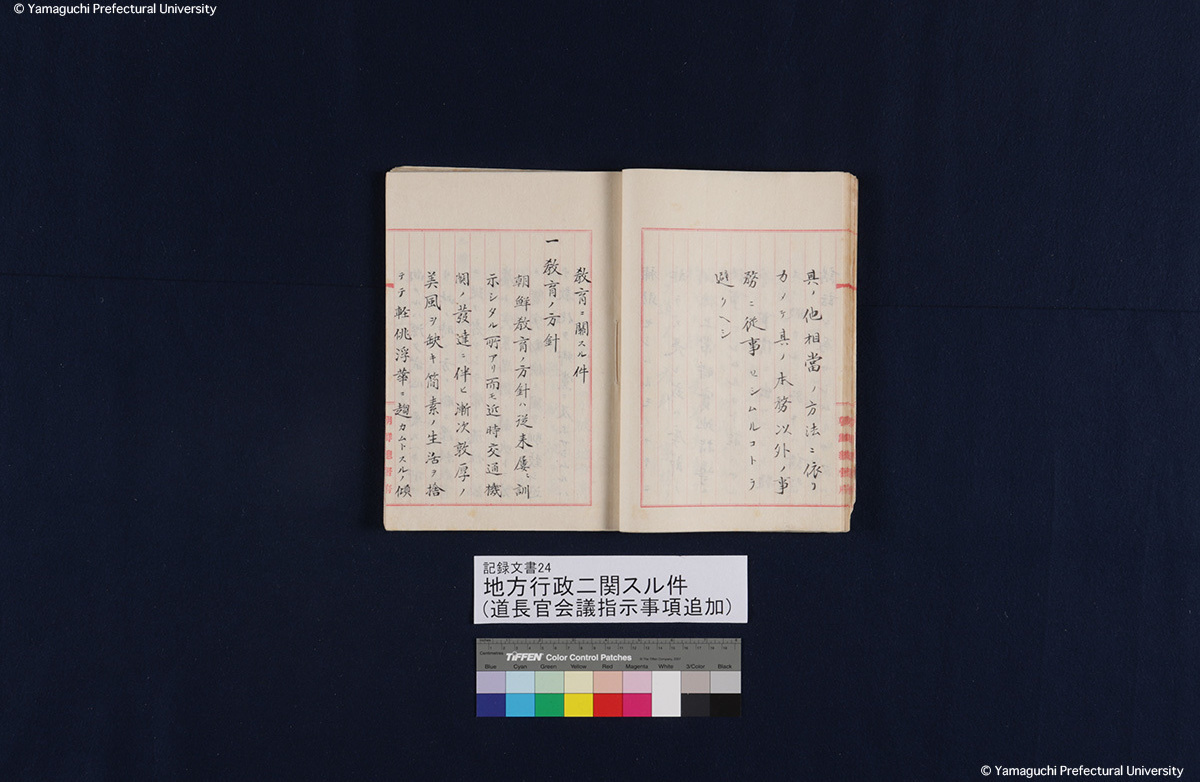 © Yamaguchi Prefectural University
其ノ他相當ノ方法ニ依リ
力メテ其ノ本務以外ノ事
務ニ從事セシムルコトヲ
避クヘシ
教育ニ關スル件
一教育ノ方針
朝鮮教育ノ方針ハ從来屢〻訓
示シタル所アリ而モ近時交通機
関ノ發達ニ伴ヒ漸次敦厚ノ
美風ヲ缺キ簡素ノ生活ヲ捨
テテ軽佻浮華ニ趨カムトスルノ傾
記録文書24
地方行政二関スル件
(道長官会議指示事項追加)
TIFFEN Color Control Patches
Blue Cyan Green Yellow Red Magenta White 3/Color Black
© Yamaguchi Prefectural University